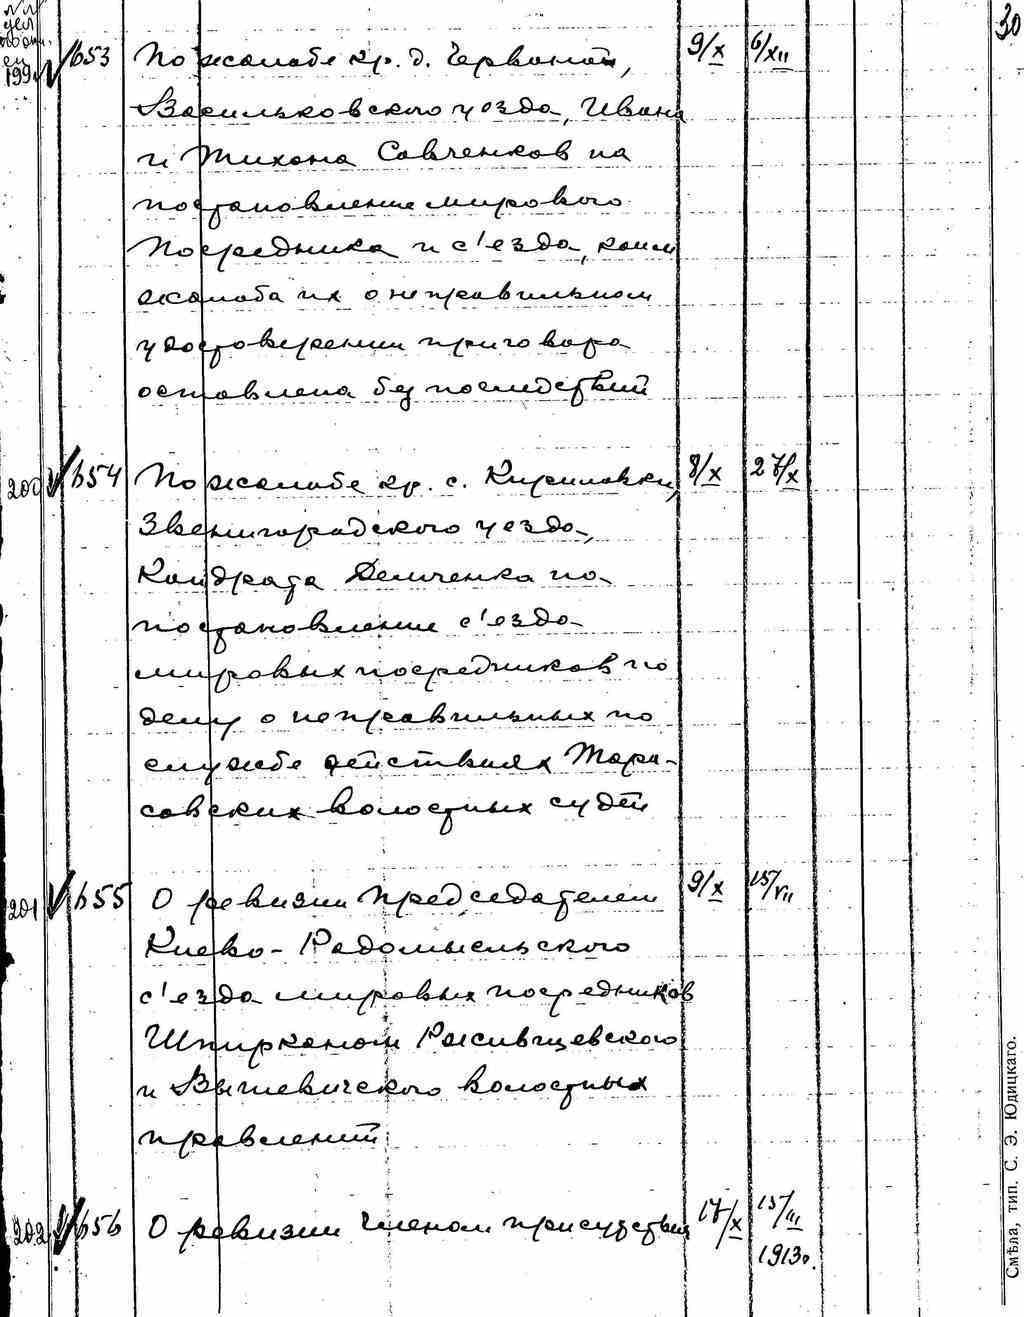 30
199 653 По жалобе кр. д. Червоной, 9/X 6/XII
Васильковского уезда, Ивана
и Тихона Савченков на
постановление мирового
посредника и с'езда, коим
жалоба их о неправильном
удостоверении приговора
оставлена без последствий
200 654 По жалобе кр. с. Кириловки, 8/X 27/X
Звенигородского уезда,
Кондрата Демченка на
постановление с'езда
мировых посредников по
делу о неправильных по
службе действиях Тара-
совских волостных судей
201 655 О ревизии председателем 9/X 15/VII
Киево-Радомысльского
с'езда мировых посредников
волостных
и Вышевичского
правлений
202 656 О ревизии членом присутствия 17/X 15/III
1913г.
Смѣла, тип. С. Э. Юдицкаго.